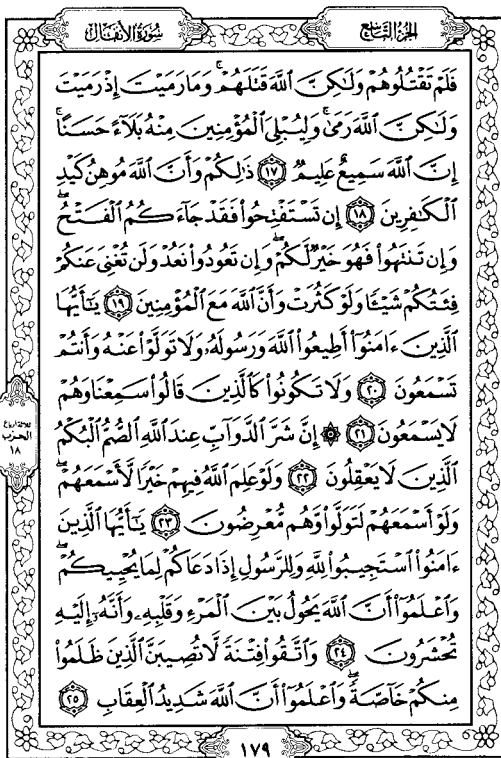 الجزء التاسع
سورة الأنفال
فَلَمْ تَقْتُلُوهُمْ وَلَٰكِنَّ ٱللَّهَ قَتَلَهُمْ ۚ وَمَا رَمَيْتَ إِذْ رَمَيْتَ
وَلَٰكِنَّ ٱللَّهَ رَمَىٰ ۚ وَلِيُبْلِيَ ٱلْمُؤْمِنِينَ مِنْهُ بَلَآءً حَسَنًا ۚ
إِنَّ ٱللَّهَ سَمِيعٌ عَلِيمٌ ١٧ ذَٰلِكُمْ وَأَنَّ ٱللَّهَ مُوهِنُ كَيْدِ
ٱلْكَٰفِرِينَ ١٨ إِن تَسْتَفْتِحُوا۟ فَقَدْ جَآءَكُمُ ٱلْفَتْحُ ۖ
وَإِن تَنتَهُوا۟ فَهُوَ خَيْرٌ لَّكُمْ ۖ وَإِن تَعُودُوا۟ نَعُدْ وَلَن تُغْنِىَ عَنكُمْ
فِئَتُكُمْ شَيْـًٔا وَلَوْ كَثُرَتْ وَأَنَّ ٱللَّهَ مَعَ ٱلْمُؤْمِنِينَ ١٩ يَٰٓأَيُّهَا
ٱلَّذِينَ ءَامَنُوٓا۟ أَطِيعُوا۟ ٱللَّهَ وَرَسُولَهُۥ وَلَا تَوَلَّوْا۟ عَنْهُ وَأَنتُمْ
تَسْمَعُونَ ٢٠ وَلَا تَكُونُوا۟ كَٱلَّذِينَ قَالُوا۟ سَمِعْنَا وَهُمْ
لَا يَسْمَعُونَ ٢١ ۞ إِنَّ شَرَّ ٱلدَّوَآبِّ عِندَ ٱللَّهِ ٱلصُّمُّ ٱلْبُكْمُ
ٱلَّذِينَ لَا يَعْقِلُونَ ٢٢ وَلَوْ عَلِمَ ٱللَّهُ فِيهِمْ خَيْرًا لَّأَسْمَعَهُمْ ۖ
وَلَوْ أَسْمَعَهُمْ لَتَوَلَّوا۟ وَّهُم مُّعْرِضُونَ ٢٣ يَٰٓأَيُّهَا ٱلَّذِينَ
ءَامَنُوا۟ ٱسْتَجِيبُوا۟ لِلَّهِ وَلِلرَّسُولِ إِذَا دَعَاكُمْ لِمَا يُحْيِيكُمْ ۖ
وَٱعْلَمُوٓا۟ أَنَّ ٱللَّهَ يَحُولُ بَيْنَ ٱلْمَرْءِ وَقَلْبِهِۦ وَأَنَّهُۥٓ إِلَيْهِ
تُحْشَرُونَ ٢٤ وَٱتَّقُوا۟ فِتْنَةً لَّا تُصِيبَنَّ ٱلَّذِينَ ظَلَمُوا۟
مِنكُمْ خَآصَّةً ۖ وَٱعْلَمُوٓا۟ أَنَّ ٱللَّهَ شَدِيدُ ٱلْعِقَابِ ٢٥
ثلاثة أرباع
الحزب
١٨
١٧٩